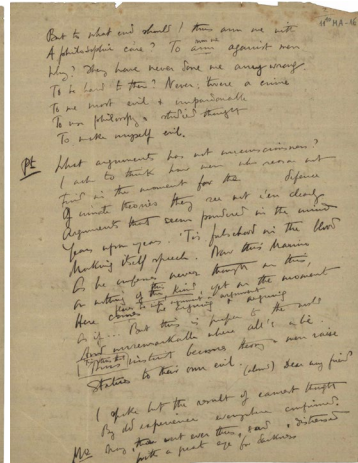 11⁶ MA-16
But to what end should I thus arm me with
A philosophic care? To arm against men
Why? They have never done me any wrong
To be hard to them? Never: 'twere a crime
To me most evil & unpardonable
To use philosophy & studied thought
To make myself evil.
What arguments has not unconsciousness?
I ask to think how men who reason not
Find in the moment for the defence
Of innate theories they see not e'en clearly
Arguments that seem pondered in the mind
Years upon years. 'Tis falsehood in the blood
Making itself speech. Now this Marino
Or he confuses never thought on this,
Or nothing of this kind; yet on the moment
Here comes he arguing
as if But this is proper to the
And unremarkable where all's a lie.
instinct becomes theory & men raise
Statues to their own evil. (aloud) Dear my friend
I spake but the result of earnest thought
By old experience everywhere confirmed.
Nay, then over this,
with a great eye for